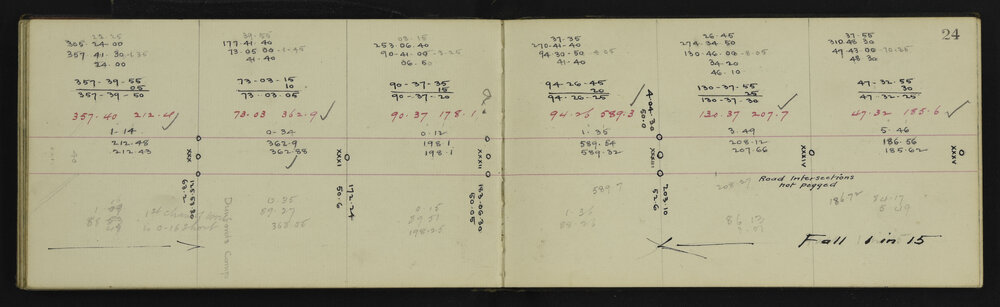 24
22-25
305-24-00
357-41-30-1-35
24-00
357-39-55
05
357-39-50
357-40 212-4
1-14
212-48
212-43
XXX
39-55
177-41-40
73-05-00-1-45
41-40
73-03-15
10
73-03-05
73-03 362-9
0-34
362-9
362-88
XXXI
08-15
253-06-40
90-41-00-3-25
06-50
90-37-35
15
90-37-20
90-37 178-1
0-12
198-1
198-1
XXXII
37-35
270-41-40
94-30-50-4-05
41-40
94-26-45
20
94-26-25
94-26 589-3
1-35
589-54
589-32
4-04-30
50-0
XXXIII
26-45
274-34-50
130-46-00-8-05
34-20
46-10
130-37-55
25
130-37-30
130-37 207-7
3-49
208-12
207-66
XXXIV
37-55
310-48-30
49-43-00
48-30
47-32-55
30
47-32-25
47-32 185-6
5-46
186-56
185-62
XXXV
Road Intersections
not pegged
172-24
50-6
143-06-20
50-05
203-10
52-6
0-35
59-27
0-15
198-25
589-7
1-36
59-26
208-27
86-13
54-17
5-49
Fall 1 in 15